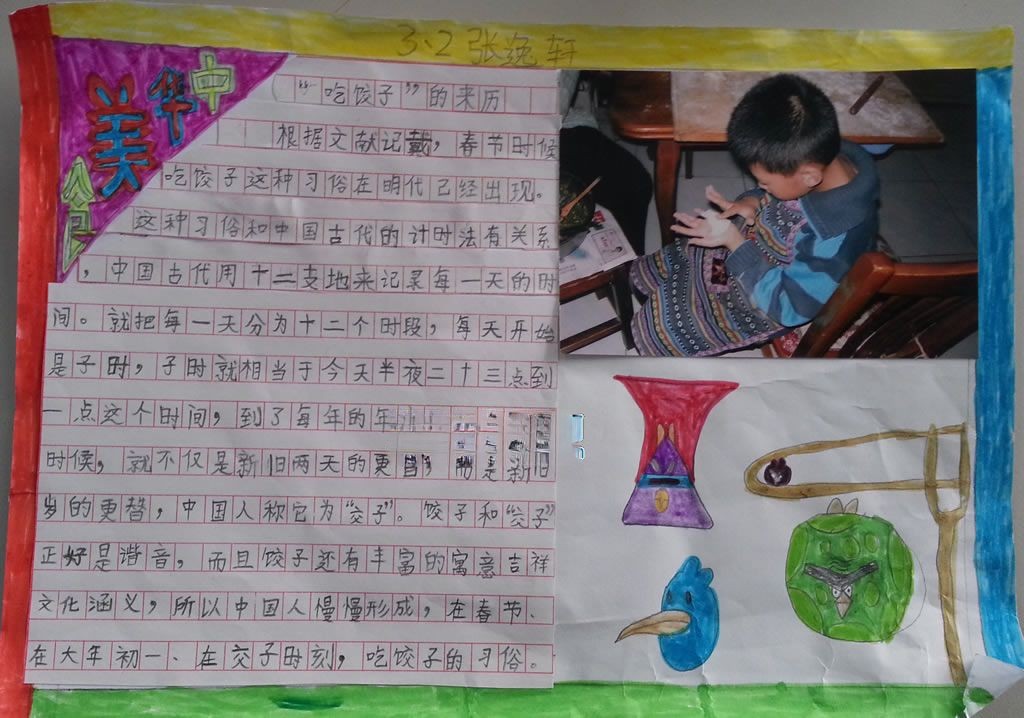 3.2 张逸轩
中华美食
“吃饺子”的来历
根据文献记戴，春节时候
吃饺子这种习俗在明代已经出现。
这种习俗和中国古代的计时法有关系
，中国古代用十二支地来记录每一天的时
间。就把每一天分为十二个时段，每天开始
是子时，子时就相当于今天半夜二十三点到
一点这个时间，到了每年的年
时候，就不仅是新旧两天的更 是新旧
岁的更替，中国人称它为“交子”。饺子和“交子”
正好是谐音，而且饺子还有丰富的寓意吉祥
文化涵义，所以中国人慢慢形成，在春节、
在大年初一、在交子时刻，吃饺子的习俗。